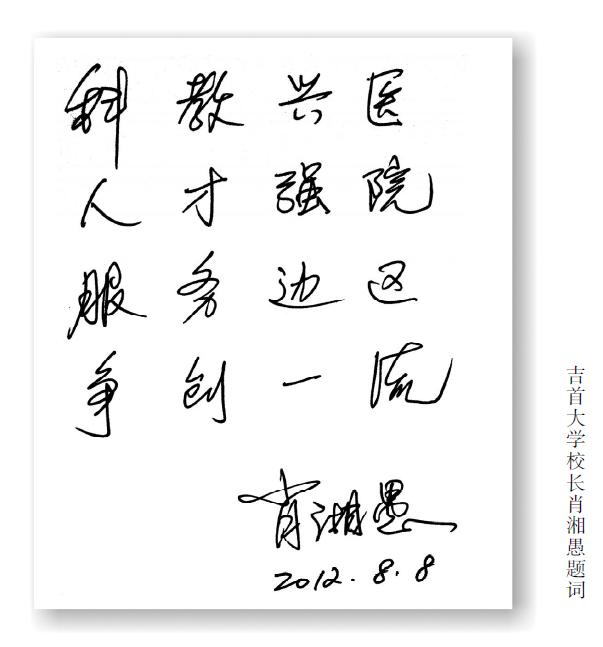 科教兴医
人才强院
服务边区
争创一流
肖湘愚
2012.8.8
吉首大学校长肖湘愚题词